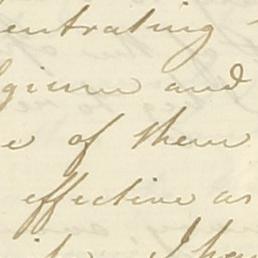 entrating
lgium and
e of them
effective as